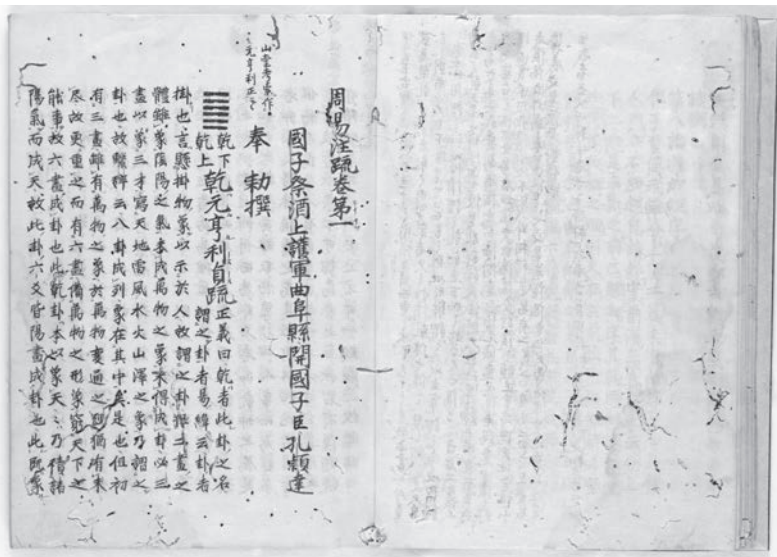 周易注疏卷第一
國子祭酒上護軍曲阜縣開國子臣孔穎達
奉 勑撰
乾下
乾上
乾元亨利貞疏正義曰乾者此卦之名
謂之卦者易緯云卦者
掛也言懸掛物象以示於人故謂之卦但二畫之
體雖象陰陽之氣未成萬物之象未得成卦必三
畫以象三才寫天地雷風水火山澤之象乃謂之
卦也故繫辭云八卦成列象在其中矣是也但初
有三畫雖有萬物之象於萬物變通之理猶有未
尽故更重之而有六畫備萬物之形象窮天下之
能事故六畫成卦也此乾卦本以象天々乃積諸
陽氣而成天故此卦六爻皆陽畫成卦也此既象